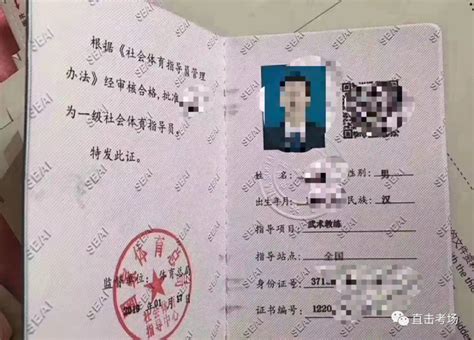 根据《社会体育指导员管理
办法》经审核合格,批准
为一级社会体育指导员。
特发此证。
监督单位:体育总局
指导中心
姓名:
性别:男
出生年月:
民族:汉
指导项目:武术教练
指导站点:全国
身份证号:371
证书编号:1220
SEAI
直击考场